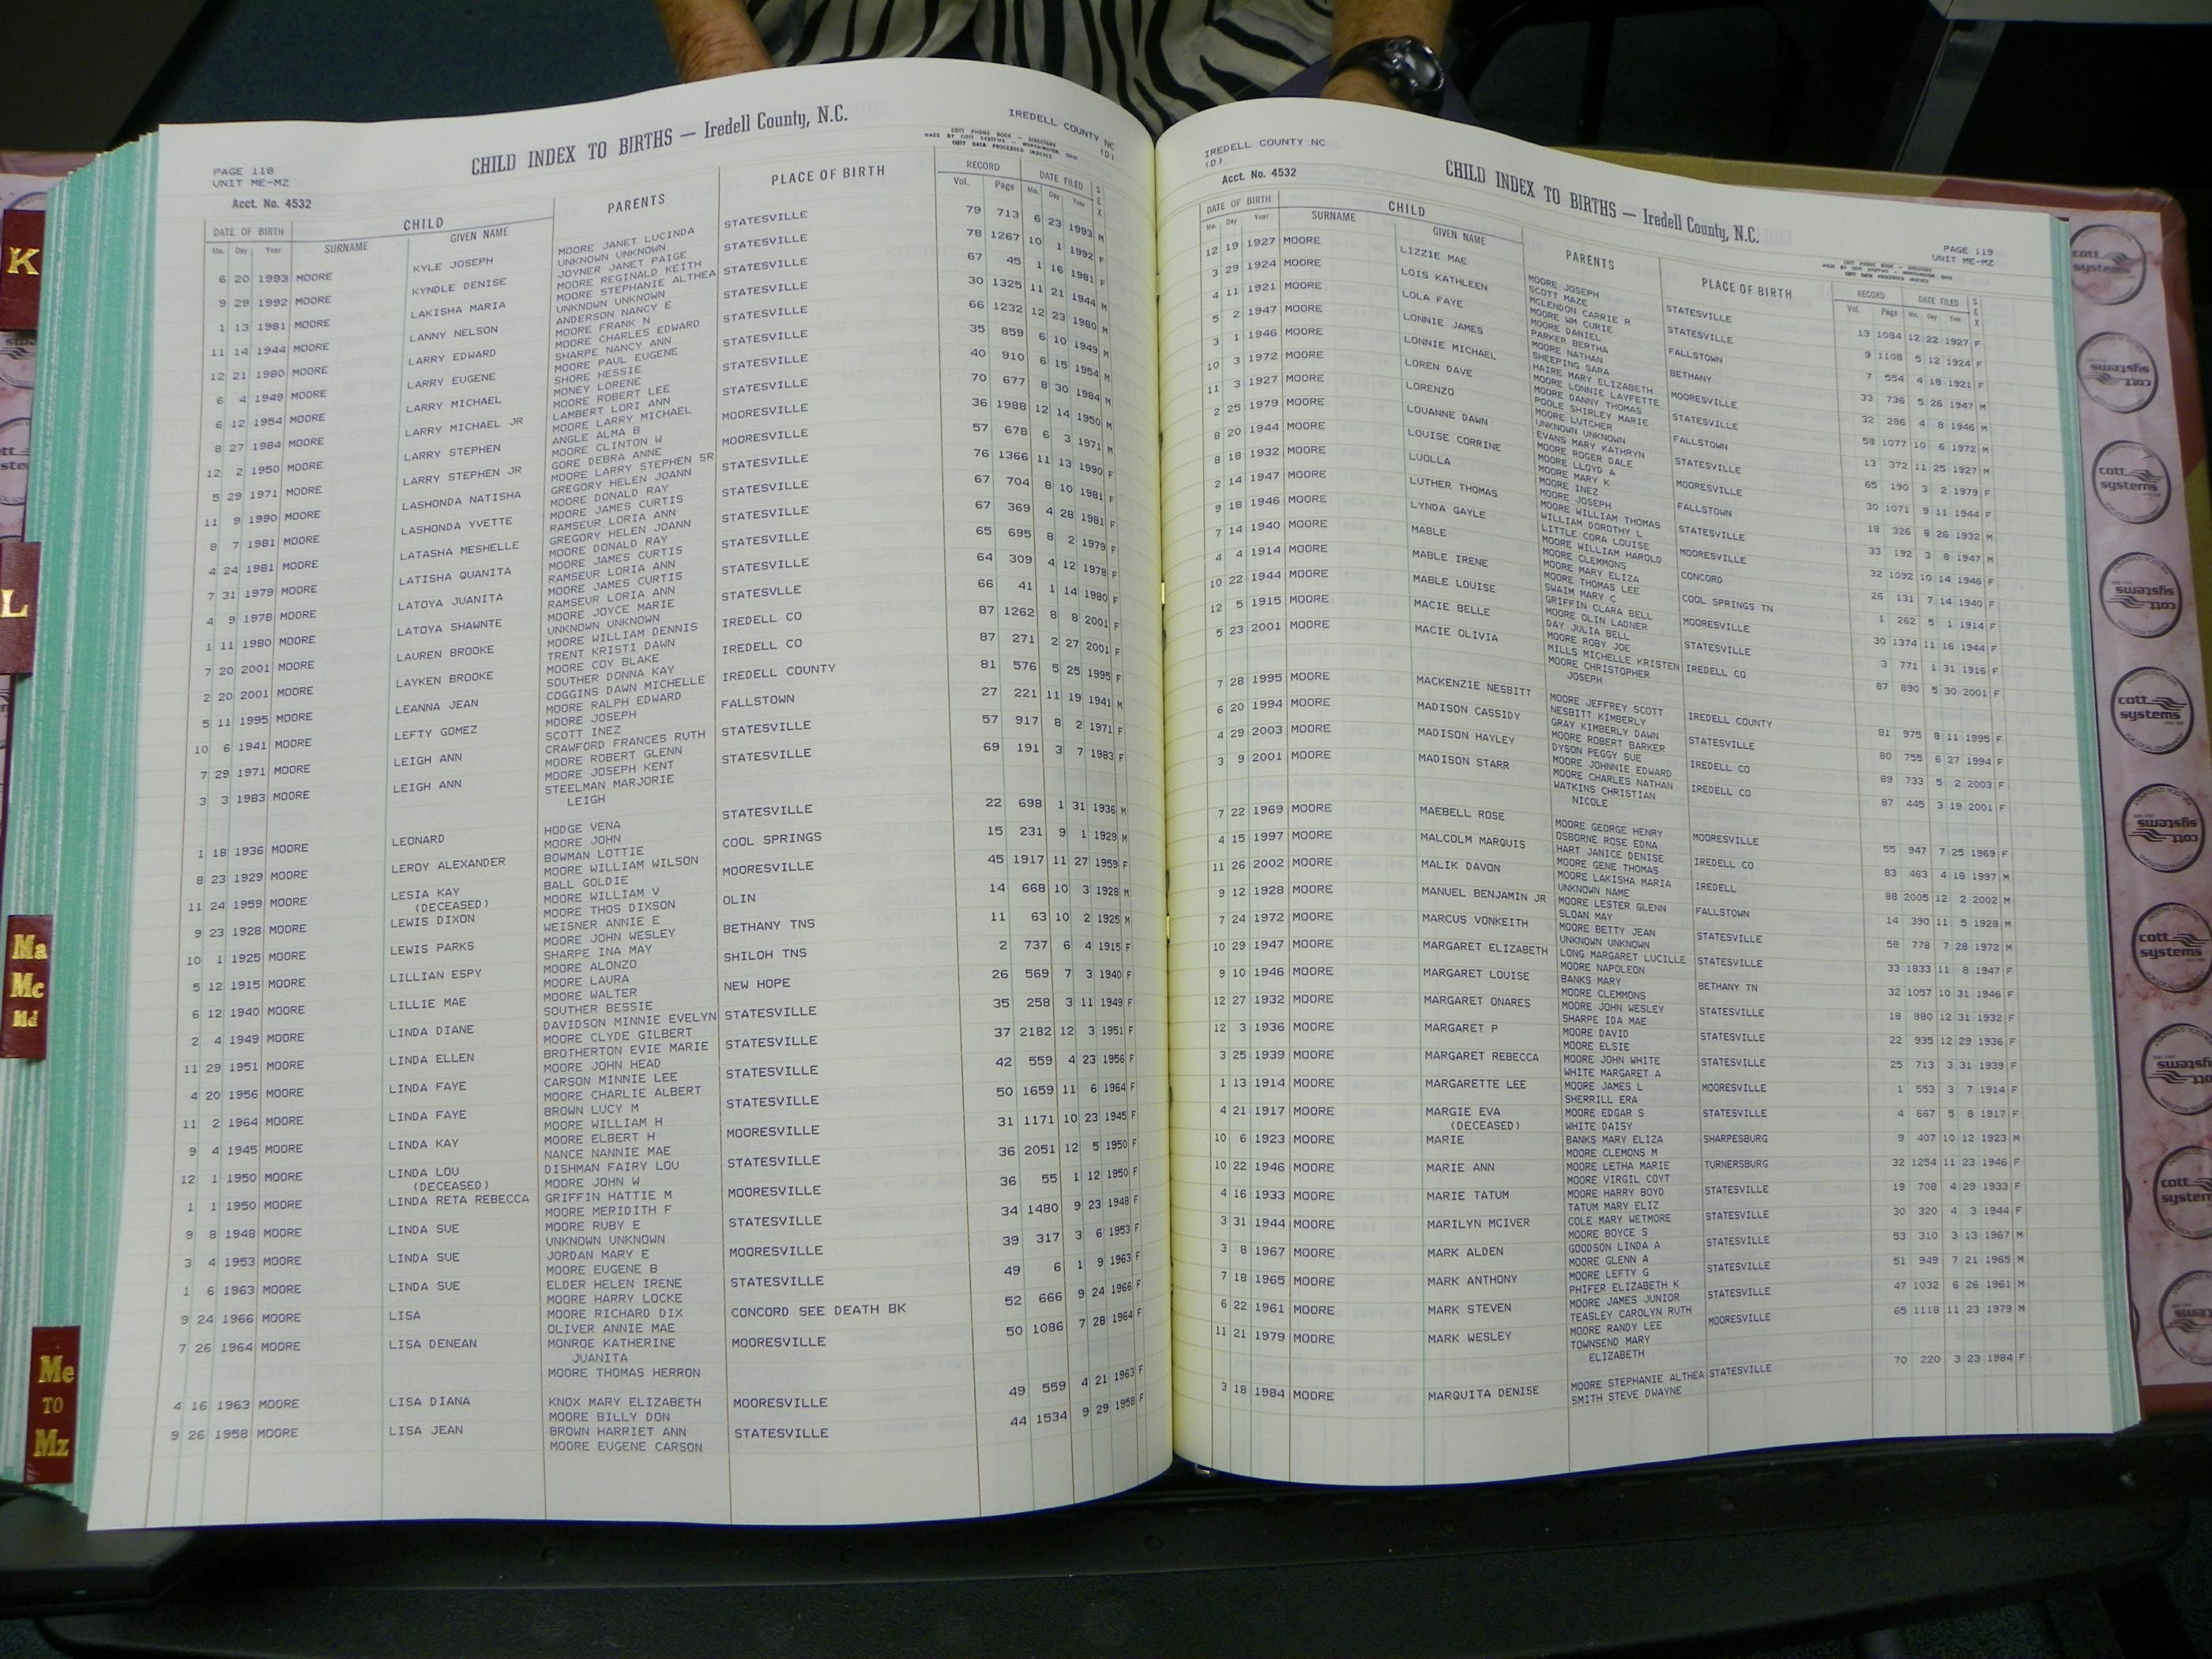 CHILD INDEX TO BIRTHS — Iredell County, N.C.
IREDELL COUNTY NC
(D)
PAGE 118
UNIT ME-MZ
Acct. No. 4532
COTT PHONE BOOK - DIRECTORY
MADE BY COTT SYSTEMS - WORTHINGTON OHIO
COTT DATA PROCESSED INDEXES
DATE OF BIRTH CHILD PARENTS PLACE OF BIRTH RECORD DATE FILED SEX
Mo. Day Year SURNAME GIVEN NAME Vol. Page Mo. Day Year
6 20 1993 MOORE KYLE JOSEPH MOORE JANET LUCINDA STATESVILLE 79 713 6 23 1993 M
UNKNOWN UNKNOWN
9 29 1992 MOORE KYNDLE DENISE JOYNER JANET PAIGE STATESVILLE 78 1267 10 1 1992 F
MOORE REGINALD KEITH
1 13 1981 MOORE LAKISHA MARIA MOORE STEPHANIE ALTHEA STATESVILLE 67 45 1 16 1981 F
UNKNOWN UNKNOWN
11 14 1944 MOORE LANNY NELSON ANDERSON NANCY E STATESVILLE 30 1325 11 21 1944 M
MOORE FRANK N
12 21 1980 MOORE LARRY EDWARD MOORE CHARLES EDWARD STATESVILLE 66 1232 12 23 1980 M
SHARPE NANCY ANN
6 4 1949 MOORE LARRY EUGENE MOORE PAUL EUGENE STATESVILLE 35 859 6 10 1949 M
SHORE HESSIE
6 12 1954 MOORE LARRY MICHAEL MONEY LORENE STATESVILLE 40 910 6 15 1954 M
MOORE ROBERT LEE
8 27 1984 MOORE LARRY MICHAEL JR LAMBERT LORI ANN STATESVILLE 70 677 8 30 1984 M
MOORE LARRY MICHAEL
12 2 1950 MOORE LARRY STEPHEN ANGLE ALMA B MOORESVILLE 36 1988 12 14 1950 M
MOORE CLINTON W
5 29 1971 MOORE LARRY STEPHEN JR GORE DEBRA ANNE MOORESVILLE 57 678 6 3 1971 M
MOORE LARRY STEPHEN SR
11 9 1990 MOORE LASHONDA NATISHA GREGORY HELEN JOANN STATESVILLE 76 1366 11 13 1990 F
MOORE DONALD RAY
8 7 1981 MOORE LASHONDA YVETTE MOORE JAMES CURTIS STATESVILLE 67 704 8 10 1981 F
RAMSEUR LORIA ANN
4 24 1981 MOORE LATASHA MESHELLE GREGORY HELEN JOANN STATESVILLE 67 369 4 28 1981 F
MOORE DONALD RAY
7 31 1979 MOORE LATISHA QUANITA MOORE JAMES CURTIS STATESVILLE 65 695 8 2 1979 F
RAMSEUR LORIA ANN
4 9 1978 MOORE LATOYA JUANITA MOORE JAMES CURTIS STATESVILLE 64 309 4 12 1978 F
RAMSEUR LORIA ANN
1 11 1980 MOORE LATOYA SHAWNTE MOORE JOYCE MARIE STATESVLLE 66 41 1 14 1980 F
UNKNOWN UNKNOWN
7 20 2001 MOORE LAUREN BROOKE MOORE WILLIAM DENNIS IREDELL CO 87 1262 8 8 2001 F
TRENT KRISTI DAWN
2 20 2001 MOORE LAYKEN BROOKE MOORE COY BLAKE IREDELL CO 87 271 2 27 2001 F
SOUTHER DONNA KAY
5 11 1995 MOORE LEANNA JEAN COGGINS DAWN MICHELLE IREDELL COUNTY 81 576 5 25 1995 F
MOORE RALPH EDWARD
10 6 1941 MOORE LEFTY GOMEZ MOORE JOSEPH FALLSTOWN 27 221 11 19 1941 M
SCOTT INEZ
7 29 1971 MOORE LEIGH ANN CRAWFORD FRANCES RUTH STATESVILLE 57 917 8 2 1971 F
MOORE ROBERT GLENN
3 3 1983 MOORE LEIGH ANN MOORE JOSEPH KENT STATESVILLE 69 191 3 7 1983 F
STEELMAN MARJORIE
LEIGH
1 18 1936 MOORE LEONARD HODGE VENA STATESVILLE 22 698 1 31 1936 M
MOORE JOHN
8 23 1929 MOORE LEROY ALEXANDER BOWMAN LOTTIE COOL SPRINGS 15 231 9 1 1929 M
MOORE WILLIAM WILSON
11 24 1959 MOORE LESIA KAY BALL GOLDIE MOORESVILLE 45 1917 11 27 1959 F
(DECEASED) MOORE WILLIAM V
9 23 1928 MOORE LEWIS DIXON MOORE THOS DIXSON OLIN 14 668 10 3 1928 M
WEISNER ANNIE E
10 1 1925 MOORE LEWIS PARKS MOORE JOHN WESLEY BETHANY TNS 11 63 10 2 1925 M
SHARPE INA MAY
5 12 1915 MOORE LILLIAN ESPY MOORE ALONZO SHILOH TNS 2 737 6 4 1915 F
MOORE LAURA
6 12 1940 MOORE LILLIE MAE MOORE WALTER NEW HOPE 26 569 7 3 1940 F
SOUTHER BESSIE
2 4 1949 MOORE LINDA DIANE DAVIDSON MINNIE EVELYN STATESVILLE 35 258 3 11 1949 F
MOORE CLYDE GILBERT
11 29 1951 MOORE LINDA ELLEN BROTHERTON EVIE MARIE STATESVILLE 37 2182 12 3 1951 F
MOORE JOHN HEAD
4 20 1956 MOORE LINDA FAYE CARSON MINNIE LEE STATESVILLE 42 559 4 23 1956 F
MOORE CHARLIE ALBERT
11 2 1964 MOORE LINDA FAYE BROWN LUCY M STATESVILLE 50 1659 11 6 1964 F
MOORE WILLIAM H
9 4 1945 MOORE LINDA KAY MOORE ELBERT H MOORESVILLE 31 1171 10 23 1945 F
NANCE NANNIE MAE
12 1 1950 MOORE LINDA LOU DISHMAN FAIRY LOU STATESVILLE 36 2051 12 5 1950 F
(DECEASED) MOORE JOHN W
1 1 1950 MOORE LINDA RETA REBECCA GRIFFIN HATTIE M MOORESVILLE 36 55 1 12 1950 F
MOORE MERIDITH F
9 8 1948 MOORE LINDA SUE MOORE RUBY E STATESVILLE 34 1480 9 23 1948 F
UNKNOWN UNKNOWN
3 4 1953 MOORE LINDA SUE JORDAN MARY E MOORESVILLE 39 317 3 6 1953 F
MOORE EUGENE B
1 6 1963 MOORE LINDA SUE ELDER HELEN IRENE STATESVILLE 49 6 1 9 1963 F
MOORE HARRY LOCKE
9 24 1966 MOORE LISA MOORE RICHARD DIX CONCORD SEE DEATH BK 52 666 9 24 1966 F
OLIVER ANNIE MAE
7 26 1964 MOORE LISA DENEAN MONROE KATHERINE MOORESVILLE 50 1086 7 28 1964 F
JUANITA
MOORE THOMAS HERRON
4 16 1963 MOORE LISA DIANA KNOX MARY ELIZABETH MOORESVILLE 49 559 4 21 1963 F
MOORE BILLY DON
9 26 1958 MOORE LISA JEAN BROWN HARRIET ANN STATESVILLE 44 1534 9 29 1958 F
MOORE EUGENE CARSON
IREDELL COUNTY NC
(D)
Acct. No. 4532
CHILD INDEX TO BIRTHS — Iredell County, N.C.
PAGE 119
UNIT ME-MZ
DATE OF BIRTH CHILD PARENTS PLACE OF BIRTH RECORD DATE FILED SEX
Mo. Day Year SURNAME GIVEN NAME Vol. Page Mo. Day Year
12 19 1927 MOORE LIZZIE MAE MOORE JOSEPH STATESVILLE 13 1084 12 22 1927 F
SCOTT MAZE
3 29 1924 MOORE LOIS KATHLEEN MCLENDON CARRIE R STATESVILLE 9 1108 5 12 1924 F
MOORE WM CURIE
4 11 1921 MOORE LOLA FAYE MOORE DANIEL FALLSTOWN 7 554 4 18 1921 F
PARKER BERTHA
5 2 1947 MOORE LONNIE JAMES MOORE NATHAN BETHANY 33 736 5 26 1947 M
SHEEPING SARA
3 1 1946 MOORE LONNIE MICHAEL HAIRE MARY ELIZABETH MOORESVILLE 32 286 4 8 1946 M
MOORE LONNIE LAYFETTE
10 3 1972 MOORE LOREN DAVE MOORE DANNY THOMAS STATESVILLE 58 1077 10 6 1972 M
POOLE SHIRLEY MARIE
11 3 1927 MOORE LORENZO MOORE LUTCHER FALLSTOWN 13 372 11 25 1927 M
UNKNOWN UNKNOWN
2 25 1979 MOORE LOUANNE DAWN EVANS MARY KATHRYN STATESVILLE 65 190 3 2 1979 F
MOORE ROGER DALE
8 20 1944 MOORE LOUISE CORRINE MOORE LLOYD A MOORESVILLE 30 1071 9 11 1944 F
MOORE MARY K
8 18 1932 MOORE LUOLLA MOORE INEZ FALLSTOWN 18 326 8 26 1932 M
MOORE JOSEPH
2 14 1947 MOORE LUTHER THOMAS MOORE WILLIAM THOMAS STATESVILLE 33 192 3 8 1947 M
WILLIAM DOROTHY L
9 18 1946 MOORE LYNDA GAYLE LITTLE CORA LOUISE MOORESVILLE 32 1092 10 14 1946 F
MOORE WILLIAM HAROLD
7 14 1940 MOORE MABLE MOORE CLEMMONS CONCORD 26 131 7 14 1940 F
MOORE MARY ELIZA
4 4 1914 MOORE MABLE IRENE MOORE THOMAS LEE COOL SPRINGS TN 1 262 5 1 1914 F
SWAIM MARY C
10 22 1944 MOORE MABLE LOUISE GRIFFIN CLARA BELL MOORESVILLE 30 1374 11 16 1944 F
MOORE OLIN LADNER
12 5 1915 MOORE MACIE BELLE DAY JULIA BELL STATESVILLE 3 771 1 31 1916 F
MOORE ROBY JOE
5 23 2001 MOORE MACIE OLIVIA MILLS MICHELLE KRISTEN IREDELL CO 87 890 5 30 2001 F
MOORE CHRISTOPHER
JOSEPH
7 28 1995 MOORE MACKENZIE NESBITT MOORE JEFFREY SCOTT IREDELL COUNTY 81 975 8 11 1995 F
NESBITT KIMBERLY
6 20 1994 MOORE MADISON CASSIDY GRAY KIMBERLY DAWN STATESVILLE 80 755 6 27 1994 F
MOORE ROBERT BARKER
4 29 2003 MOORE MADISON HAYLEY DYSON PEGGY SUE IREDELL CO 89 733 5 2 2003 F
MOORE JOHNNIE EDWARD
3 9 2001 MOORE MADISON STARR MOORE CHARLES NATHAN IREDELL CO 87 445 3 19 2001 F
WATKINS CHRISTIAN
NICOLE
7 22 1969 MOORE MAEBELL ROSE MOORE GEORGE HENRY MOORESVILLE 55 947 7 25 1969 F
OSBORNE ROSE EDNA
4 15 1997 MOORE MALCOLM MARQUIS HART JANICE DENISE IREDELL CO 83 463 4 18 1997 M
MOORE GENE THOMAS
11 26 2002 MOORE MALIK DAVON MOORE LAKISHA MARIA IREDELL 88 2005 12 2 2002 M
UNKNOWN NAME
9 12 1928 MOORE MANUEL BENJAMIN JR MOORE LESTER GLENN FALLSTOWN 14 390 11 5 1928 M
SLOAN MAY
7 24 1972 MOORE MARCUS VONKEITH MOORE BETTY JEAN STATESVILLE 58 778 7 28 1972 M
UNKNOWN UNKNOWN
10 29 1947 MOORE MARGARET ELIZABETH LONG MARGARET LUCILLE STATESVILLE 33 1833 11 8 1947 F
MOORE NAPOLEON
9 10 1946 MOORE MARGARET LOUISE BANKS MARY BETHANY TN 32 1057 10 31 1946 F
MOORE CLEMMONS
12 27 1932 MOORE MARGARET ONARES MOORE JOHN WESLEY STATESVILLE 18 880 12 31 1932 F
SHARPE IDA MAE
12 3 1936 MOORE MARGARET P MOORE DAVID STATESVILLE 22 935 12 29 1936 F
MOORE ELSIE
3 25 1939 MOORE MARGARET REBECCA MOORE JOHN WHITE STATESVILLE 25 713 3 31 1939 F
WHITE MARGARET A
1 13 1914 MOORE MARGARETTE LEE MOORE JAMES L MOORESVILLE 1 553 3 7 1914 F
SHERRILL ERA
4 21 1917 MOORE MARGIE EVA MOORE EDGAR S STATESVILLE 4 667 5 8 1917 F
(DECEASED) WHITE DAISY
10 6 1923 MOORE MARIE BANKS MARY ELIZA SHARPESBURG 9 407 10 12 1923 M
MOORE CLEMONS M
10 22 1946 MOORE MARIE ANN MOORE LETHA MARIE TURNERSBURG 32 1254 11 23 1946 F
MOORE VIRGIL COYT
4 16 1933 MOORE MARIE TATUM MOORE HARRY BOYD STATESVILLE 19 708 4 29 1933 F
TATUM MARY ELIZ
3 31 1944 MOORE MARILYN MCIVER COLE MARY WETMORE STATESVILLE 30 320 4 3 1944 F
MOORE BOYCE S
3 8 1967 MOORE MARK ALDEN GOODSON LINDA A STATESVILLE 53 310 3 13 1967 M
MOORE GLENN A
7 18 1965 MOORE MARK ANTHONY MOORE LEFTY G STATESVILLE 51 949 7 21 1965 M
PHIFER ELIZABETH K
6 22 1961 MOORE MARK STEVEN MOORE JAMES JUNIOR STATESVILLE 47 1032 6 26 1961 M
TEASLEY CAROLYN RUTH
11 21 1979 MOORE MARK WESLEY MOORE RANDY LEE MOORESVILLE 65 1118 11 23 1979 M
TOWNSEND MARY
ELIZABETH
3 18 1984 MOORE MARQUITA DENISE MOORE STEPHANIE ALTHEA STATESVILLE 70 220 3 23 1984 F
SMITH STEVE DWAYNE
K
L
Ma
Mc
Md
Me
TO
Mz
cott
systems